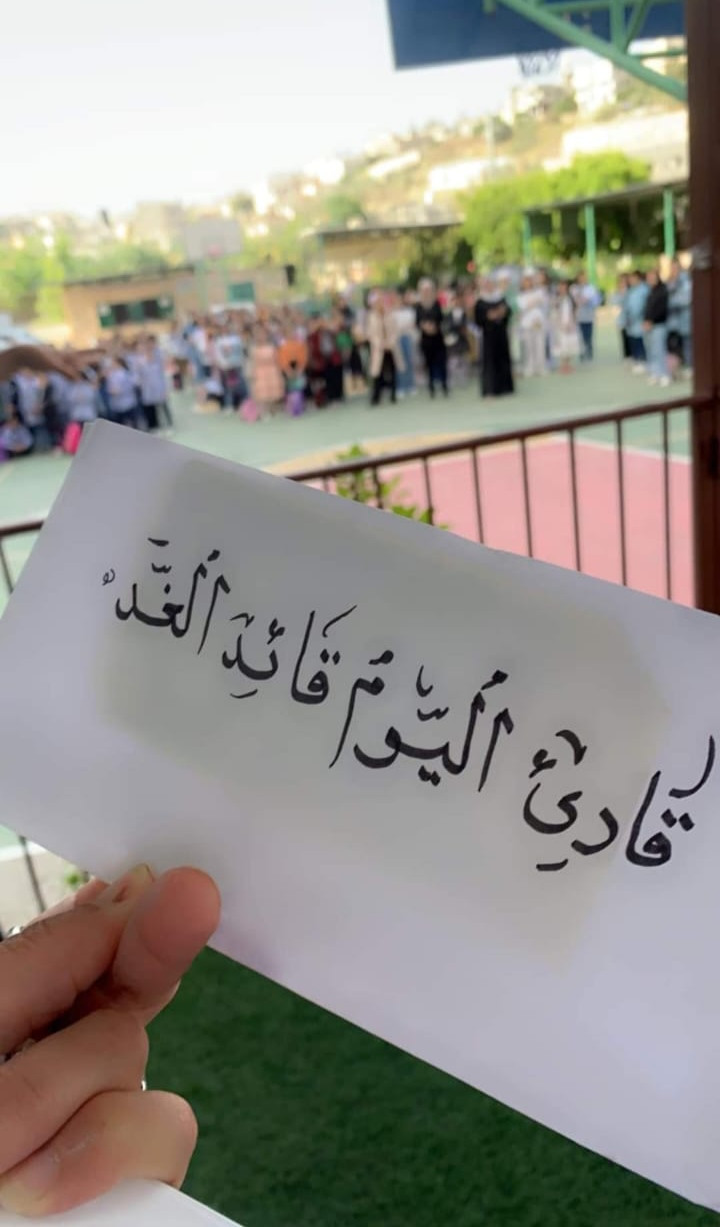 قادِئ اليَّوم قائِد الغَّد